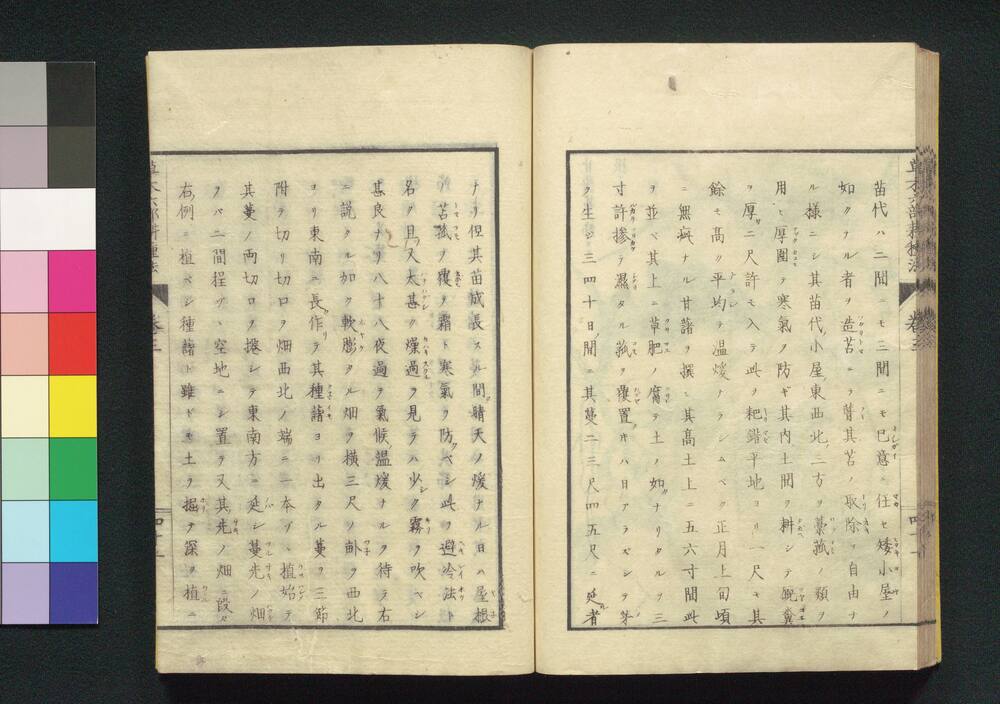 苗代ハ二間ニモ三間ニモ已意ニ任セ矮小屋ノ
如クツル者ヲ造苫ニテ葺其苫ノ取除ヲ自由ナ
ル様ニシ其苗代小屋東西北二方ヲ藁菰ノ類ヲ
用ヒ厚圍テ寒氣ヲ防ギ其内土間ヲ耕シテ馥糞
ヲ厚サ二尺許モ入テ此ヲ耙錯平地ヨリ一尺モ其
餘モ高ク平均テ温煖ナラシムベク正月上旬頃
ニ無疵ナル甘藷ヲ撰ミ其高土上ニ五六寸間此
ヲ並べ其上ニ草肥ノ腐テ土ノ如ナリタルヲ三
寸許摻テ濕タル菰ヲ覆置キハ日アラズシテ芽
ヲ生シ三四十日間ニ其蔓二三尺四五尺ニ延者
ナリ但其苗成長スル間晴天ノ煖ナル日ハ屋根
ノ苫菰ヲ覆テ霜ト寒氣ヲ防グベシ此ヲ避冷法ト
名ク且又太甚ク燥過ヲ見ラハ少シク霧ヲ吹ベシ
甚良ナリ八十八夜過テ氣候温煖ナルヲ待テ右
ニ説タル如ク軟膨タル畑ヲ横三尺ノ畝ヲ西北
ヨリ東南ニ長ク作リテ其種藷ヨリ出タル蔓ヲ三節
附テ切リ切口ヲ畑西北ノ端ニ一本ヅヽ植始テ
其蔓ノ両切口ヲ捲シテ東南方ニ延シ蔓先ノ畑
ヲバ二間程ヅヽ空地ニシ置テ又其先ノ畑一段々
右例ニ植ベシ種藷ト雖ドモ土ヲ掘テ深ク植ニ
巻三